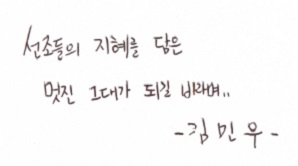 선조들의 지혜를 담은
멋진 그대가 되길 바라며..
-김민우-